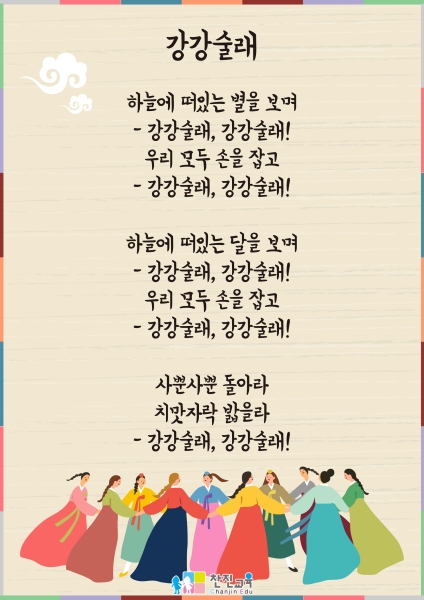 강강술래
하늘에 떠있는 별을 보며
- 강강술래, 강강술래!
우리 모두 손을 잡고
- 강강술래, 강강술래!
하늘에 떠있는 달을 보며
- 강강술래, 강강술래!
우리 모두 손을 잡고
- 강강술래, 강강술래!
사뿐사뿐 돌아라
치맛자락 밟을라
- 강강술래, 강강술래!
찬진교육
Chanjin Edu